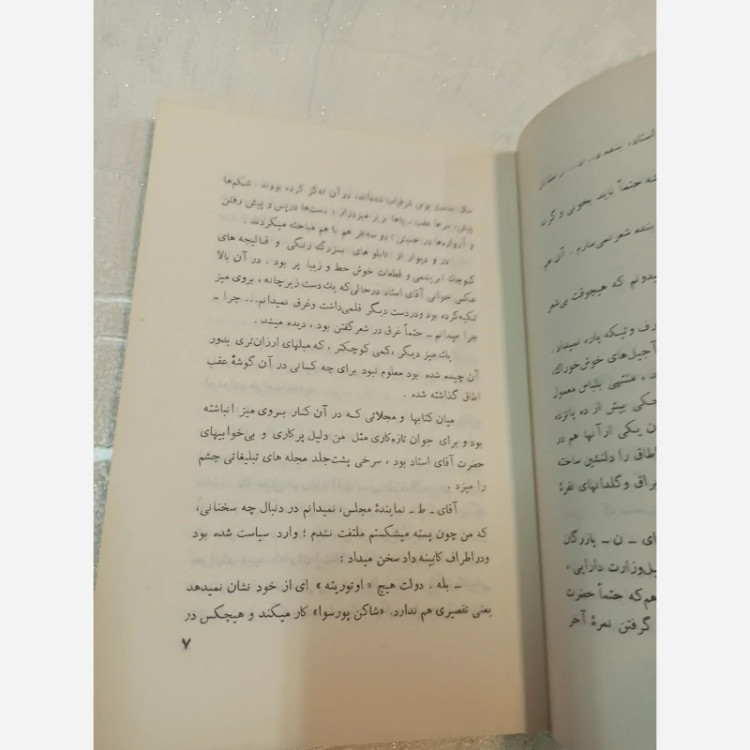 پیش، سرها عقب، پاها زیر میز دراز، دست‌ها در پس و پیش رفتن
و آرواره‌ها در جنبش؛ دو سه‌نفر هم با هم مباحثه میکردند.
در و دیوار از تابلو های بزرگ رنگی و قالیچه های
کوچك ابریشمی و قطعات خوش خط و زیبا پر بود، در آن بالا
عکس جوانی آقای استاد درحالی‌که یك دست زیرچانه، بروی میز
تکیه‌کرده بود ودردست دیگر قلمی‌داشت وغرق نمیدانم... چرا ـ
چرا میدانم ـ حتماً غرق در شعر گفتن بود، دیده میشد.
یك میز دیگر، کمی کوچکتر، که مبلهای ارزان‌تری بدور
آن چیده شده بود معلوم نبود برای چه کسانی در آن گوشهٔ عقب
اطاق گذاشته شده.
میان کتابها و مجلاتی که در آن کنار بروی میز انباشته
بود و برای جوان تازه‌کاری مثل من دلیل پرکاری و بی‌خوابیهای
حضرت آقای استاد بود، سرخی پشت‌جلد مجله های تبلیغاتی چشم
را میزد.
آقای ـ ط ـ نمایندهٔ مجلس، نمیدانم در دنبال چه سخنانی،
که من چون پسته میشکستم ملتفت نشدم؛ وارد سیاست شده بود
ودراطراف کابینه داد سخن میداد:
ـ بله. دولت هیچ «اوتوریته» ای از خود نشان نمیدهد
یعنی تقصیری هم ندارد. «شاکن پورسوا» کار میکند و هیچکس در
۷
شه حتماً باید بخوری و گرنه
بنده شعر نمی‌سازم. آن هم
یدونم که هیچوقت بی‌شعر
رف وتیکه پاره نمیداد.
آجیل‌های خوش‌خوراك
د، منتهی بلباس معمول
چکی بیش از ده پانزده
ن یکی از آنها هم در
اطاق را دلنشین ساخته
طراق و گلدانهای نقرهٔ
ای ـ ن ـ بازرگان
یل‌وزارت دارایی،
هم‌که حتماً حضرت
گرفتن نمرهٔ آخر